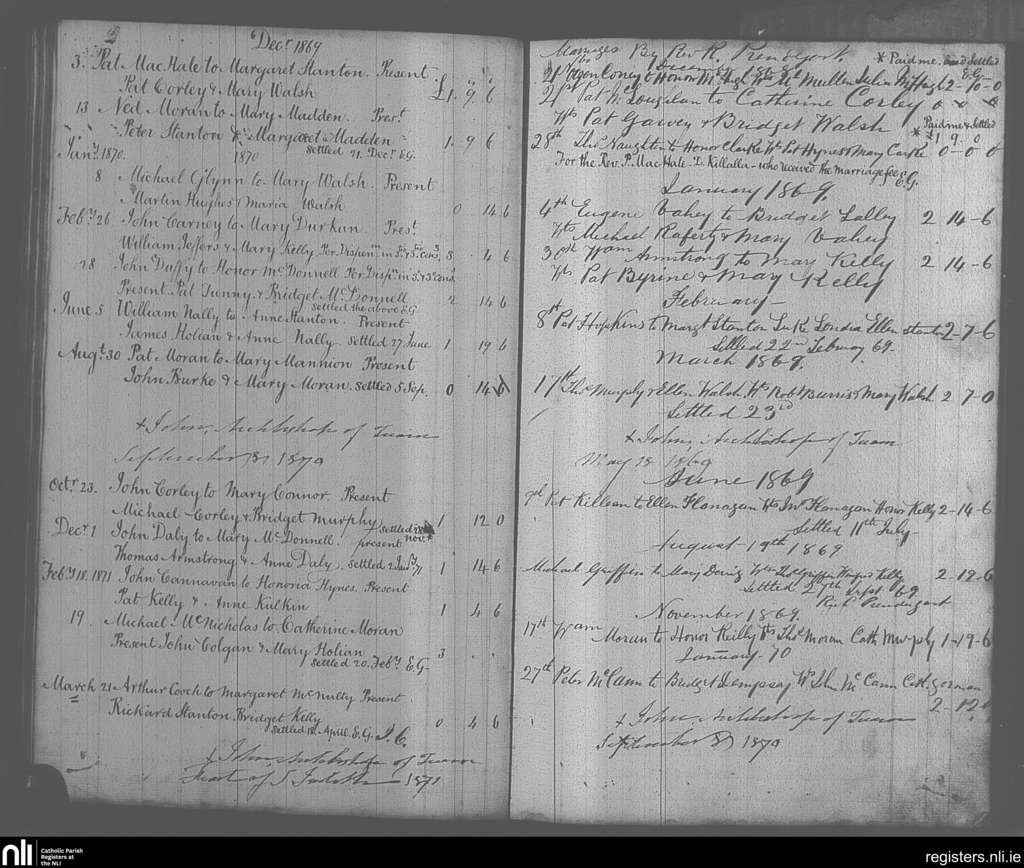 Decr 1869
3. Pat Mac Hale to Margaret Stanton. Present
Pat Corley & Mary Walsh £1. 9. 6
13 Ned Moran to Mary Madden. Prest
Peter Stanton & Margaret Madden 1. 9 6
settled 21. Decr E.G.
Jany 1870. 1870
8 Michael Glynn to Mary Walsh. Present
Martin Hughes & Maria Walsh 0 14 6
Feby 26 John Carney to Mary Durkan. Prest
William Jeffers & Mary Kelly
28 John Duffy to Honor McDonnell
Present Pat Tunny & Bridget McDonnell 2 14 6
settled the above E.G
June 5 William Nally to Anne Stanton. Present
James Holian & Anne Nally. settled 27. June 1 19 6
Augt 30 Pat Moran to Mary Mannion Present
John Burke & Mary Moran. settled 5 Sep. 0 14
+ John, Archbishop of Tuam
September 8, 1870
Octr 23. John Corley to Mary Connor. Present
Michael Corley & Bridget Murphy 1 12 0
settled
Novr
Decr 1 John Daly to Mary McDonnell. present
Thomas Armstrong & Anne Daly. settled 1 14 6
Feby 18. 1871 John Cannavan to Honoria Hynes. Present
Pat Kelly & Anne Kulkin 1 4 6
19. Michael McNicholas to Catherine Moran
Present John Colgan & Mary Holian 3 . .
settled 20. Feby E.G.
March 21 Arthur Cooch to Margaret McNully Present
Rickard Stanton Bridget Kelly 0 4 6
settled 18. April E.G.
+ John, Archbishop of Tuam
1871
Marriages By Rev R. Prendergast.
* Paid me and Settled
E.G.
December
2-10-0
21st Pat McLoughlan to Catherine Corley 0 0 0
Wts Pat Garvey & Bridget Walsh
Paid me & settled
* £1 9. 0
28th Thos Naughton to Honor Clarke Wts Pat Hynes & Mary Carke 0-0 0
For the Rev. P. Mac Hale. D. Killalla - who received the marriage fee E.G.
January 1869.
4th Eugene Vahey to Bridget Lalley 2 14-6
Wts Michael Raferty & Mary Vahey
30th Wam Armstrong to Mary Kelly 2 14-6
Wts Pat Byrine & Mary Kelly
February-
8th Pat Hopkins to Margt Stanton Luke Ellen Stanton 2-7-6
Settled 22nd February 69.
March 1869.
17th Thos Murphy & Ellen Walsh Wts Robt Burris & Mary Walsh 2 7-0
Settled 23rd
+ John, Archbishop of Tuam
May 18 1869
June 1869
9th Pat Killean to Ellen Flanagan Wts Jno Flanagan Honor Kelly 2-14-6
Settled 11th July-
August 19th 1869
Michael Griffin to Mary 2-19-6
Settled 27th Sept. 69
Rev R Prendergast
November 1869.
17th Wam Moran to Honor Reilly Wts Thos Moran Cath Murphy 1-19-6
January-70
27th Peter McCann to Bridget Dempsay Wts John McCann Cath Gorman
2-12-0
+ John, Archbishop of Tuam
September 8, 1870
nli
Catholic Parish
Registers at
the NLI
registers.nli.ie